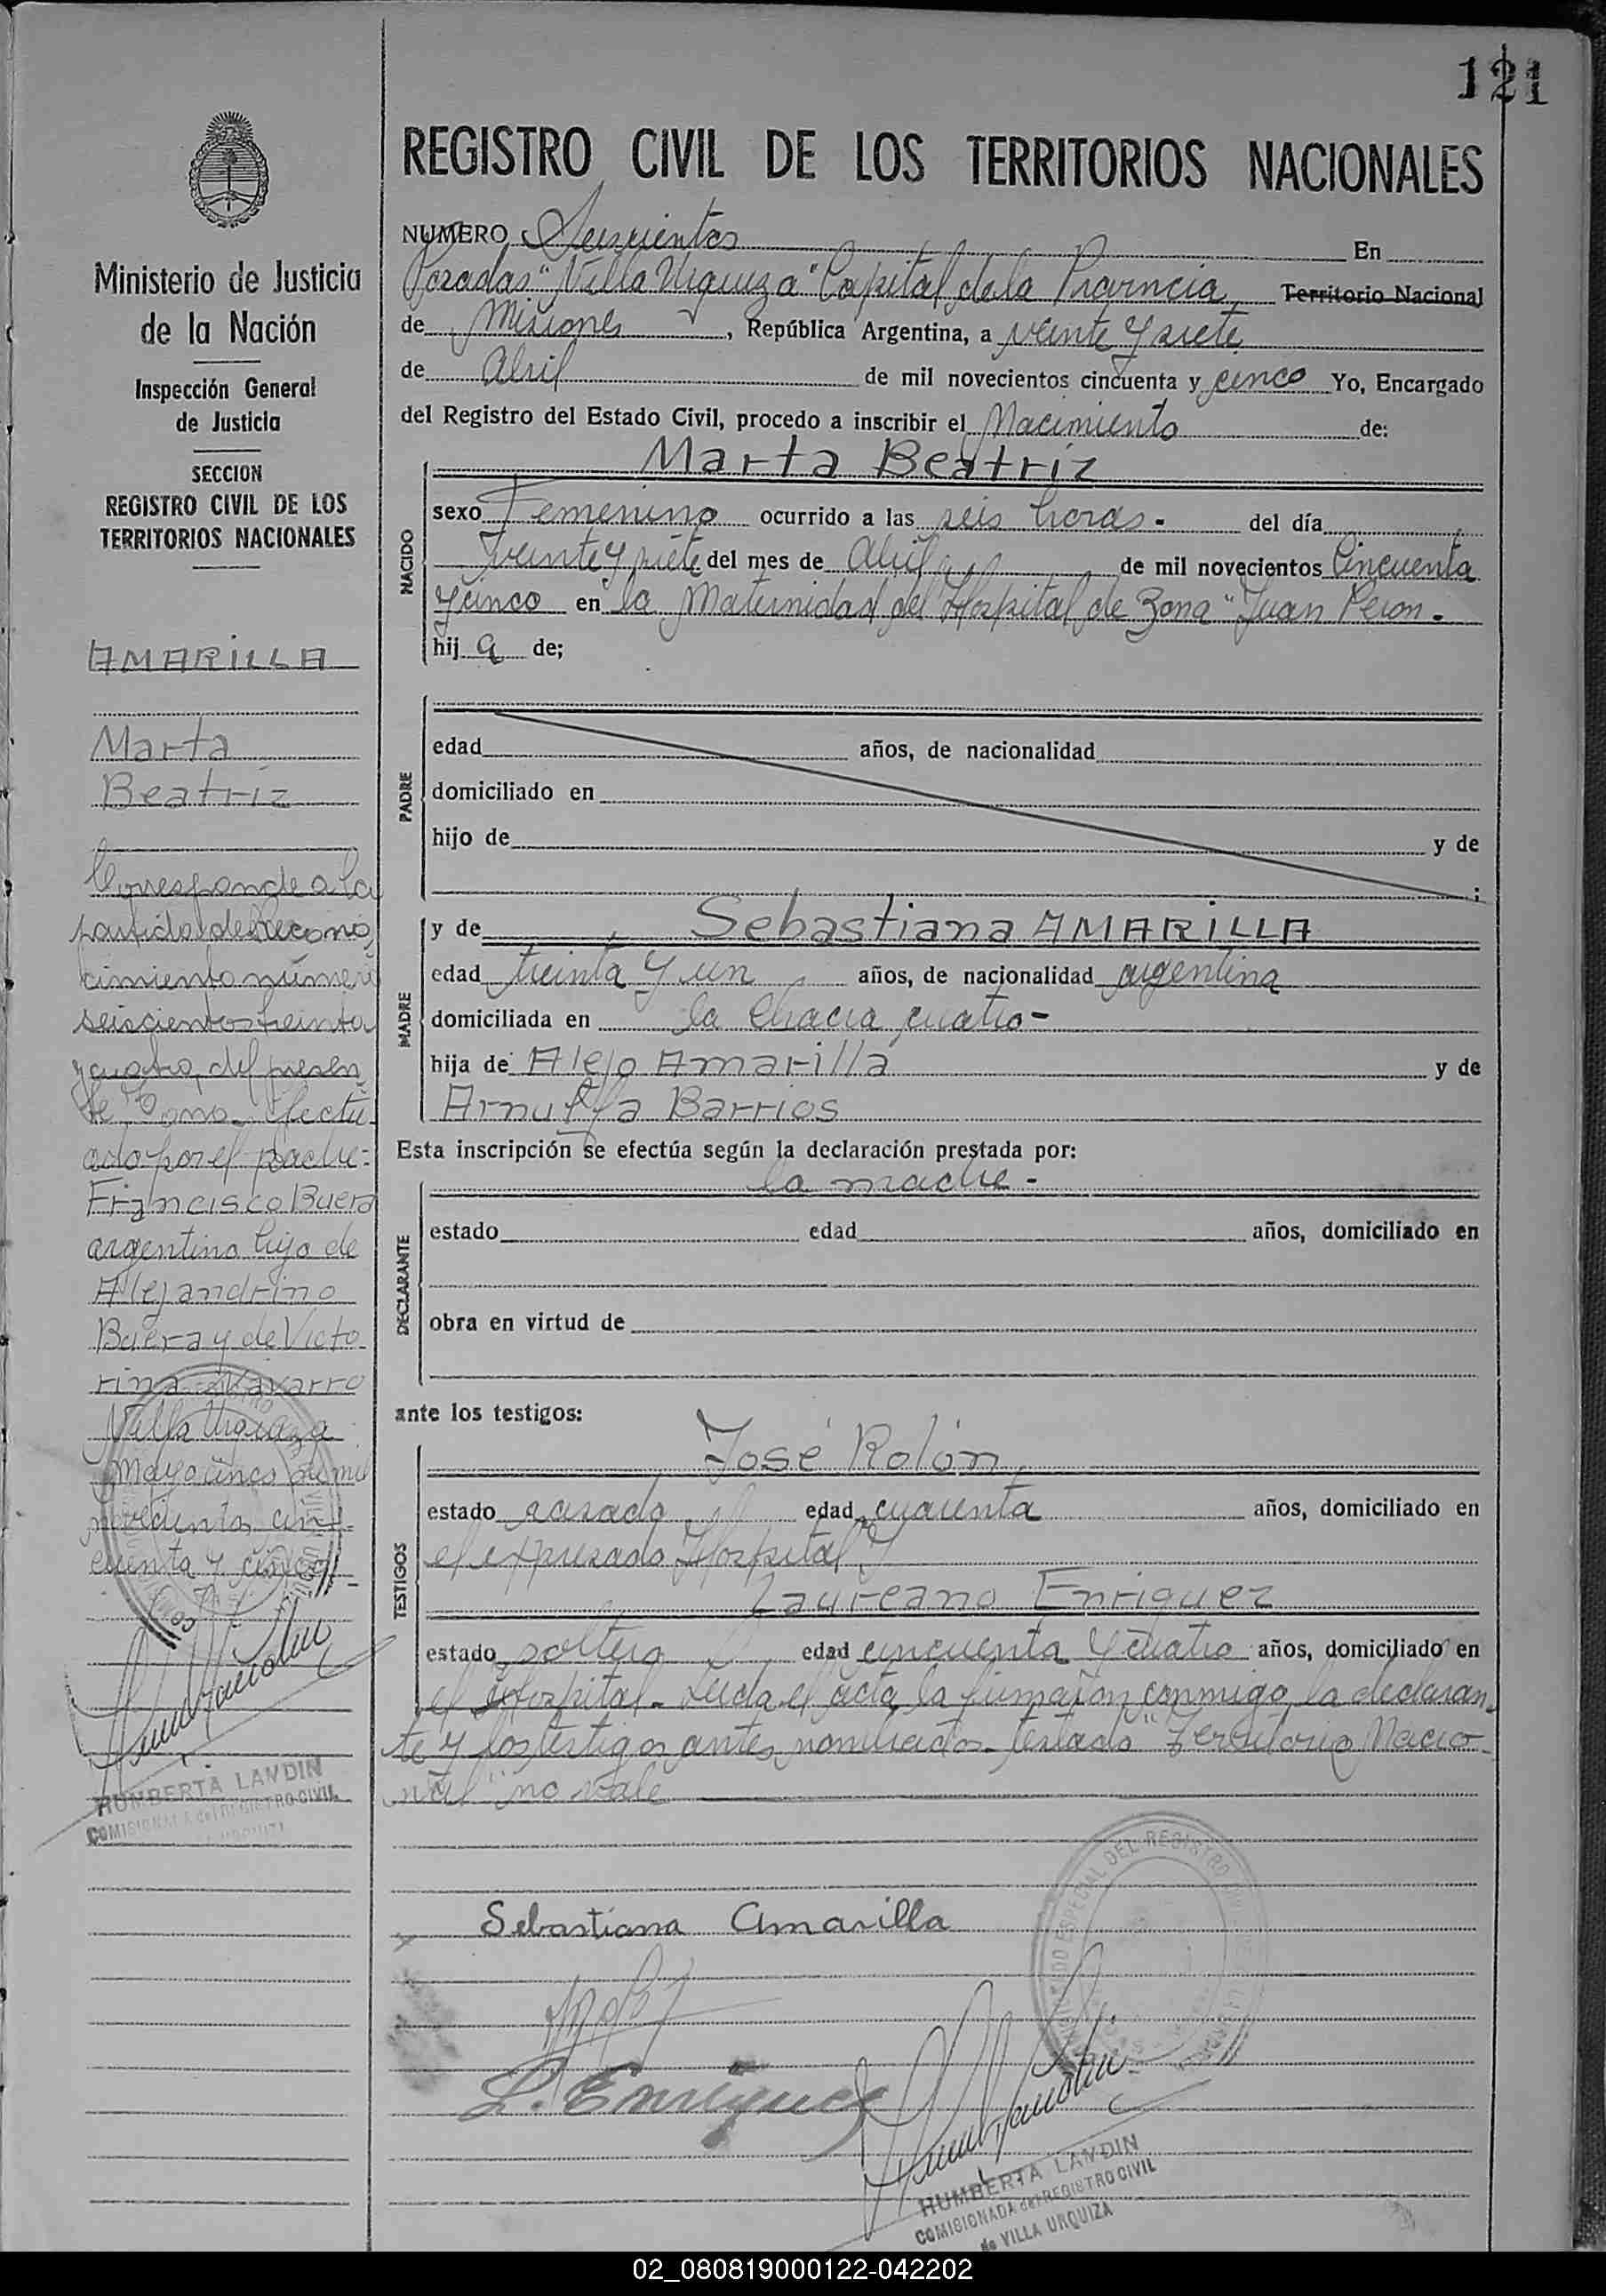 121
REGISTRO CIVIL DE LOS TERRITORIOS NACIONALES
Ministerio de Justicia
de la Nación
Inspección General
de Justicia
SECCION
REGISTRO CIVIL DE LOS
TERRITORIOS NACIONALES
AMARILLA
Marta
Beatriz
Corresponde a la
partida de Recono
cimiento número
seiscientos treinta
y cuatro, del presen
te Tomo. Efectu
ado por el padre:
Francisco Buera
argentino hijo de
Alejandrino
Buera y de Victo
rina Navarro
Villa Urquiza
Mayo cinco de mil
novecientos cin
cuenta y cinco
HUMBERTA LANDIN
COMISIONADA del REGISTRO CIVIL
URQUIZA
NUMERO Seiscientos En
Posadas "Villa Urquiza" Capital de la Provincia, Territorio Nacional
de Misiones, República Argentina, a veinte y siete
de Abril de mil novecientos cincuenta y cinco Yo, Encargado
del Registro del Estado Civil, procedo a inscribir el Nacimiento de:
Marta Beatriz
NACIDO
sexo Femenino ocurrido a las seis horas. del día
veinte y siete del mes de Abril de mil novecientos Cincuenta
y cinco en la Maternidad del Hospital de Zona "Juan Peron.
hij a de;
PADRE
edad años, de nacionalidad
domiciliado en
hijo de y de
;
MADRE
y de Sebastiana AMARILLA
edad treinta y un años, de nacionalidad argentina
domiciliada en la Chacra cuatro-
hija de Alejo Amarilla y de
Arnulfa Barrios
Esta inscripción se efectúa según la declaración prestada por:
DECLARANTE
la madre -
estado edad años, domiciliado en
obra en virtud de
ante los testigos:
TESTIGOS
José Rolón,
estado casado edad cuarenta años, domiciliado en
el expresado Hospital y
Laureano Enriquez
estado soltero edad cincuenta y cuatro años, domiciliado en
el Hospital. Leida el acta, la firmaron conmigo, la declaran
te y los testigos antes nombrados. Testado "Territorio Nacio
nal" no vale
Sebastiana Amarilla
L. Enriquez
HUMBERTA LANDIN
COMISIONADA del REGISTRO CIVIL
de VILLA URQUIZA
02_080819000122-042202